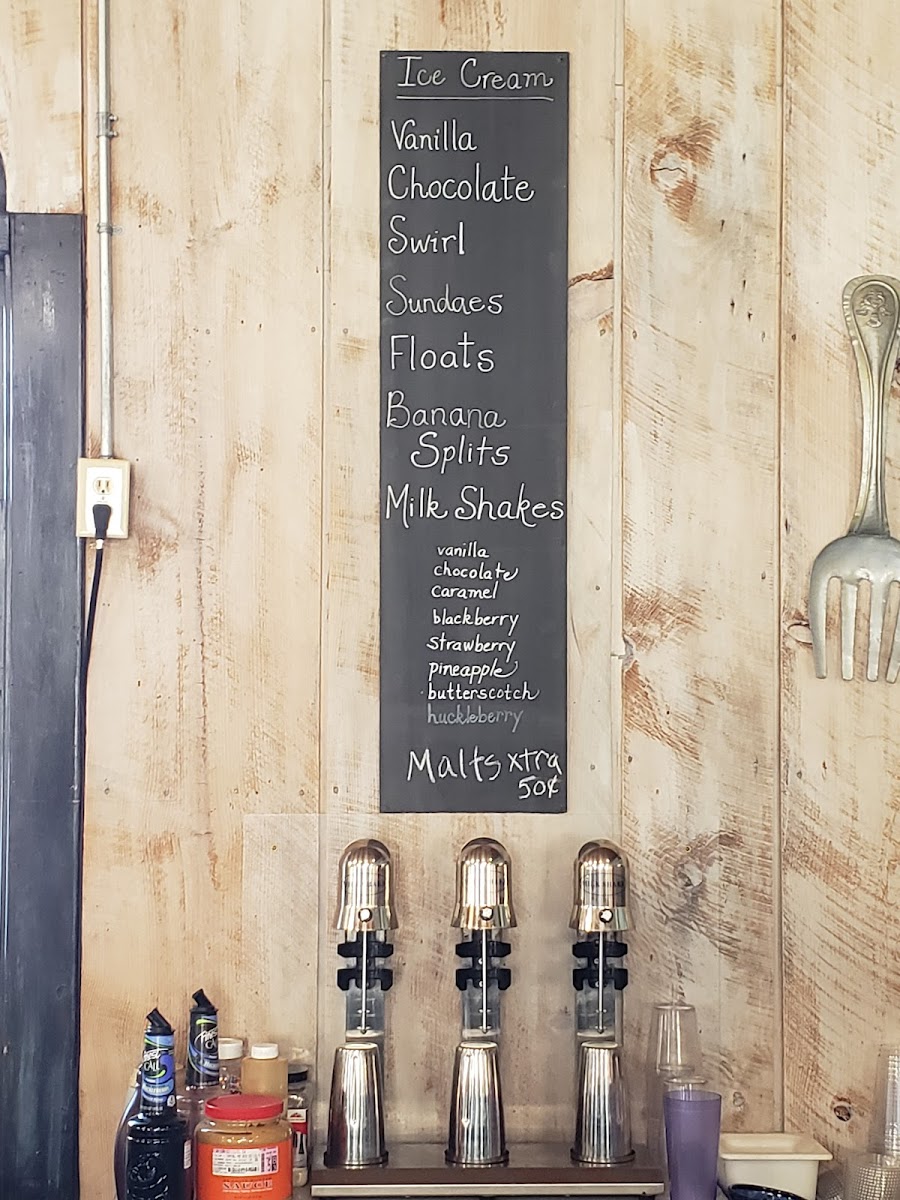 Ice Cream
Vanilla
Chocolate
Swirl
Sundaes
Floats
Banana
Splits
Milk Shakes
vanilla
chocolate
caramel
blackberry
strawberry
pineapple
butterscotch
huckleberry
Malts xtra
50¢
SAUCE